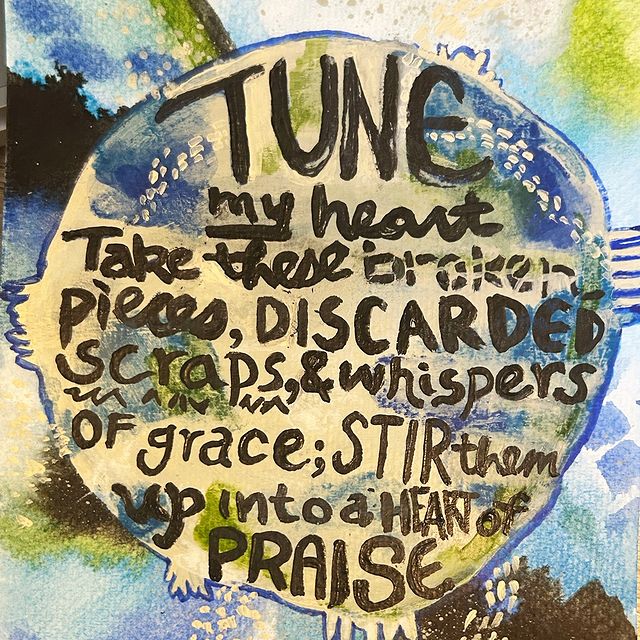 TUNE
my heart
Take these broken
pieces, DISCARDED
scraps, & whispers
OF grace; STIR them
up into a HEART of
PRAISE